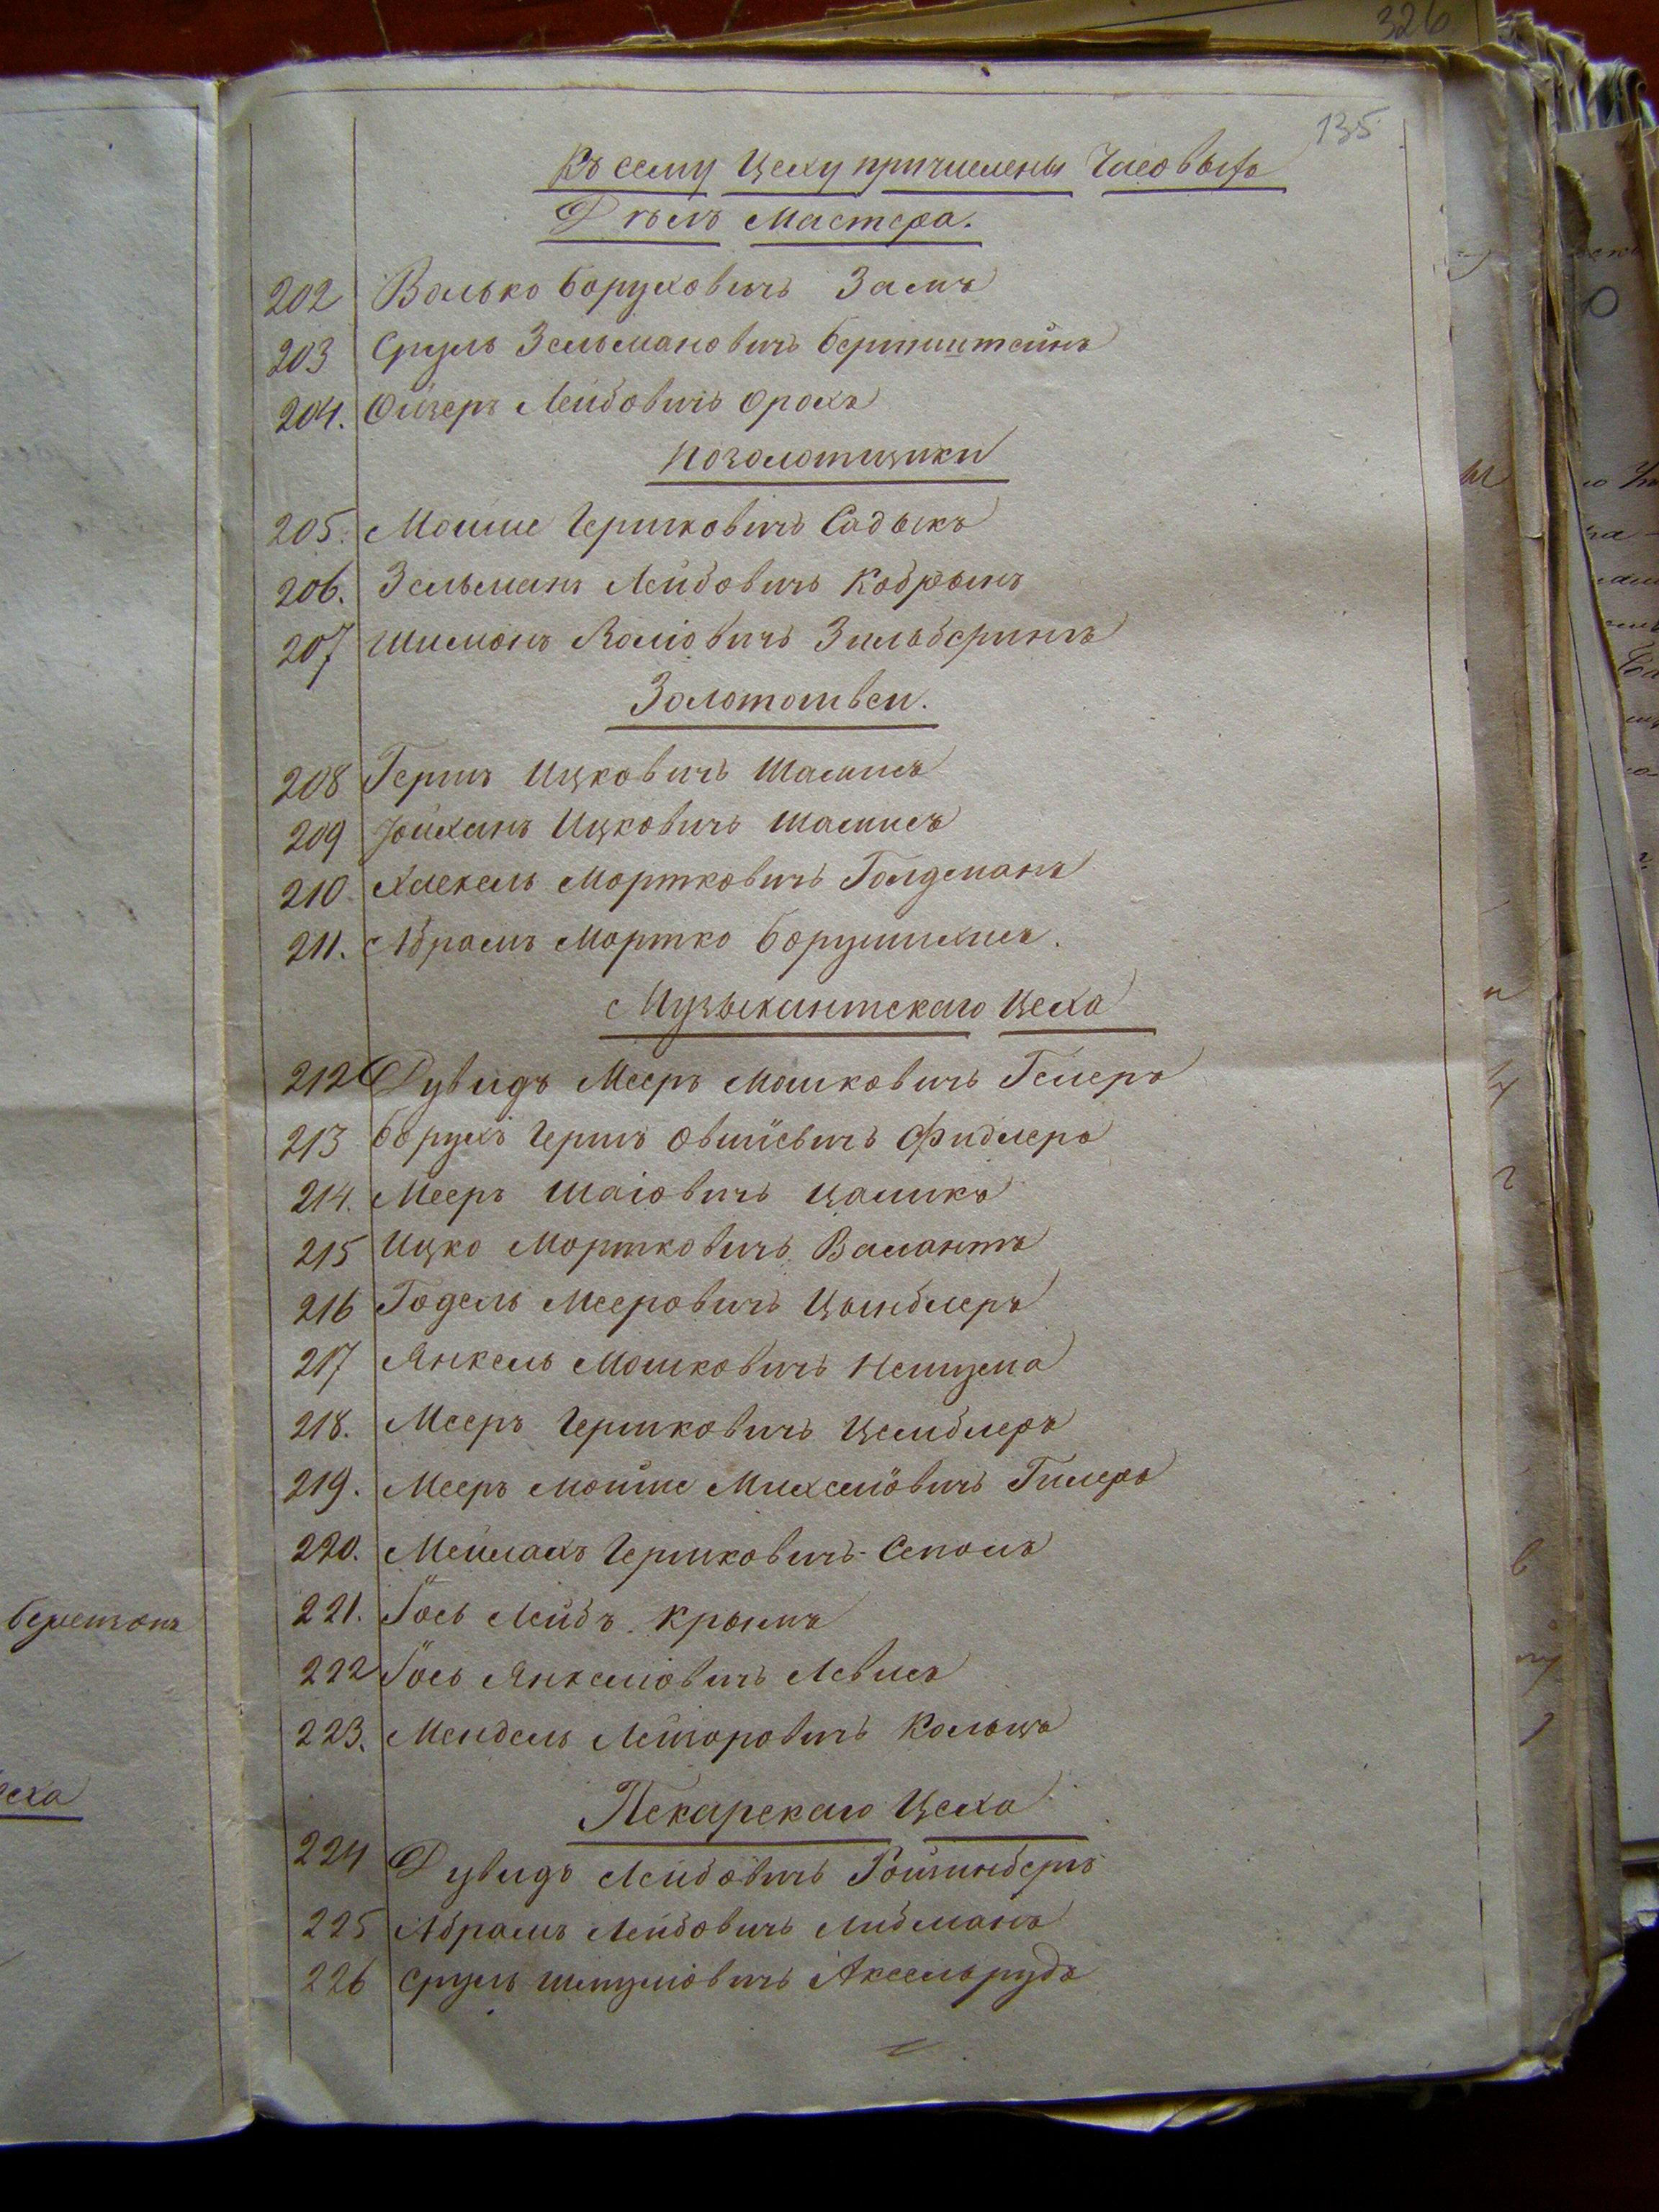 326
135
Къ сему Цеху причислены Часовыхъ
Дѣлъ Мастера.
202 Волько Боруховичъ Замъ
203 Сруль Зельмановичъ Бернштейнъ
204. Ойзеръ Лейбовичъ Орохъ
Позолотщики
205. Мойше Гершковичъ Садыкъ
206. Зельманъ Лейбовичъ Кобрынъ
207 Шимонъ Волiовичъ Зильберингъ
Золотошвеи.
208 Гершъ Ицковичъ Шамисъ
209 Йойханъ Ицковичъ Шамисъ
210 Хаскель Мортковичъ Голдманъ
211. Абрамъ Мортко Борушихисъ.
Музыкантскаго Цеха
212 Дувидъ Мееръ Мошковичъ Гелеръ
213 Борухъ Гершъ Овшiевичъ Фидлеръ
214. Мееръ Шаiовичъ Цаликъ
215 Ицко Мортковичъ Валантъ
216 Годель Мееровичъ Цымблеръ
217 Янкель Мошковичъ
218. Мееръ Гершковичъ Цемблеръ
219. Мееръ Мойше Михелiовичъ Гилеръ
220. Мейлахъ Гершковичъ Сеполъ
221. Iось Лейбъ Крымъ
222 Iось Янкелiовичъ Левисъ
223. Мендель Лейзоровичъ Кольцъ
Пекарскаго Цеха
224 Дувидъ Лейбовичъ Ройзинбергъ
225 Абрамъ Лейбовичъ Либманъ
226 Сруль Шмулiовичъ Аксельрудъ